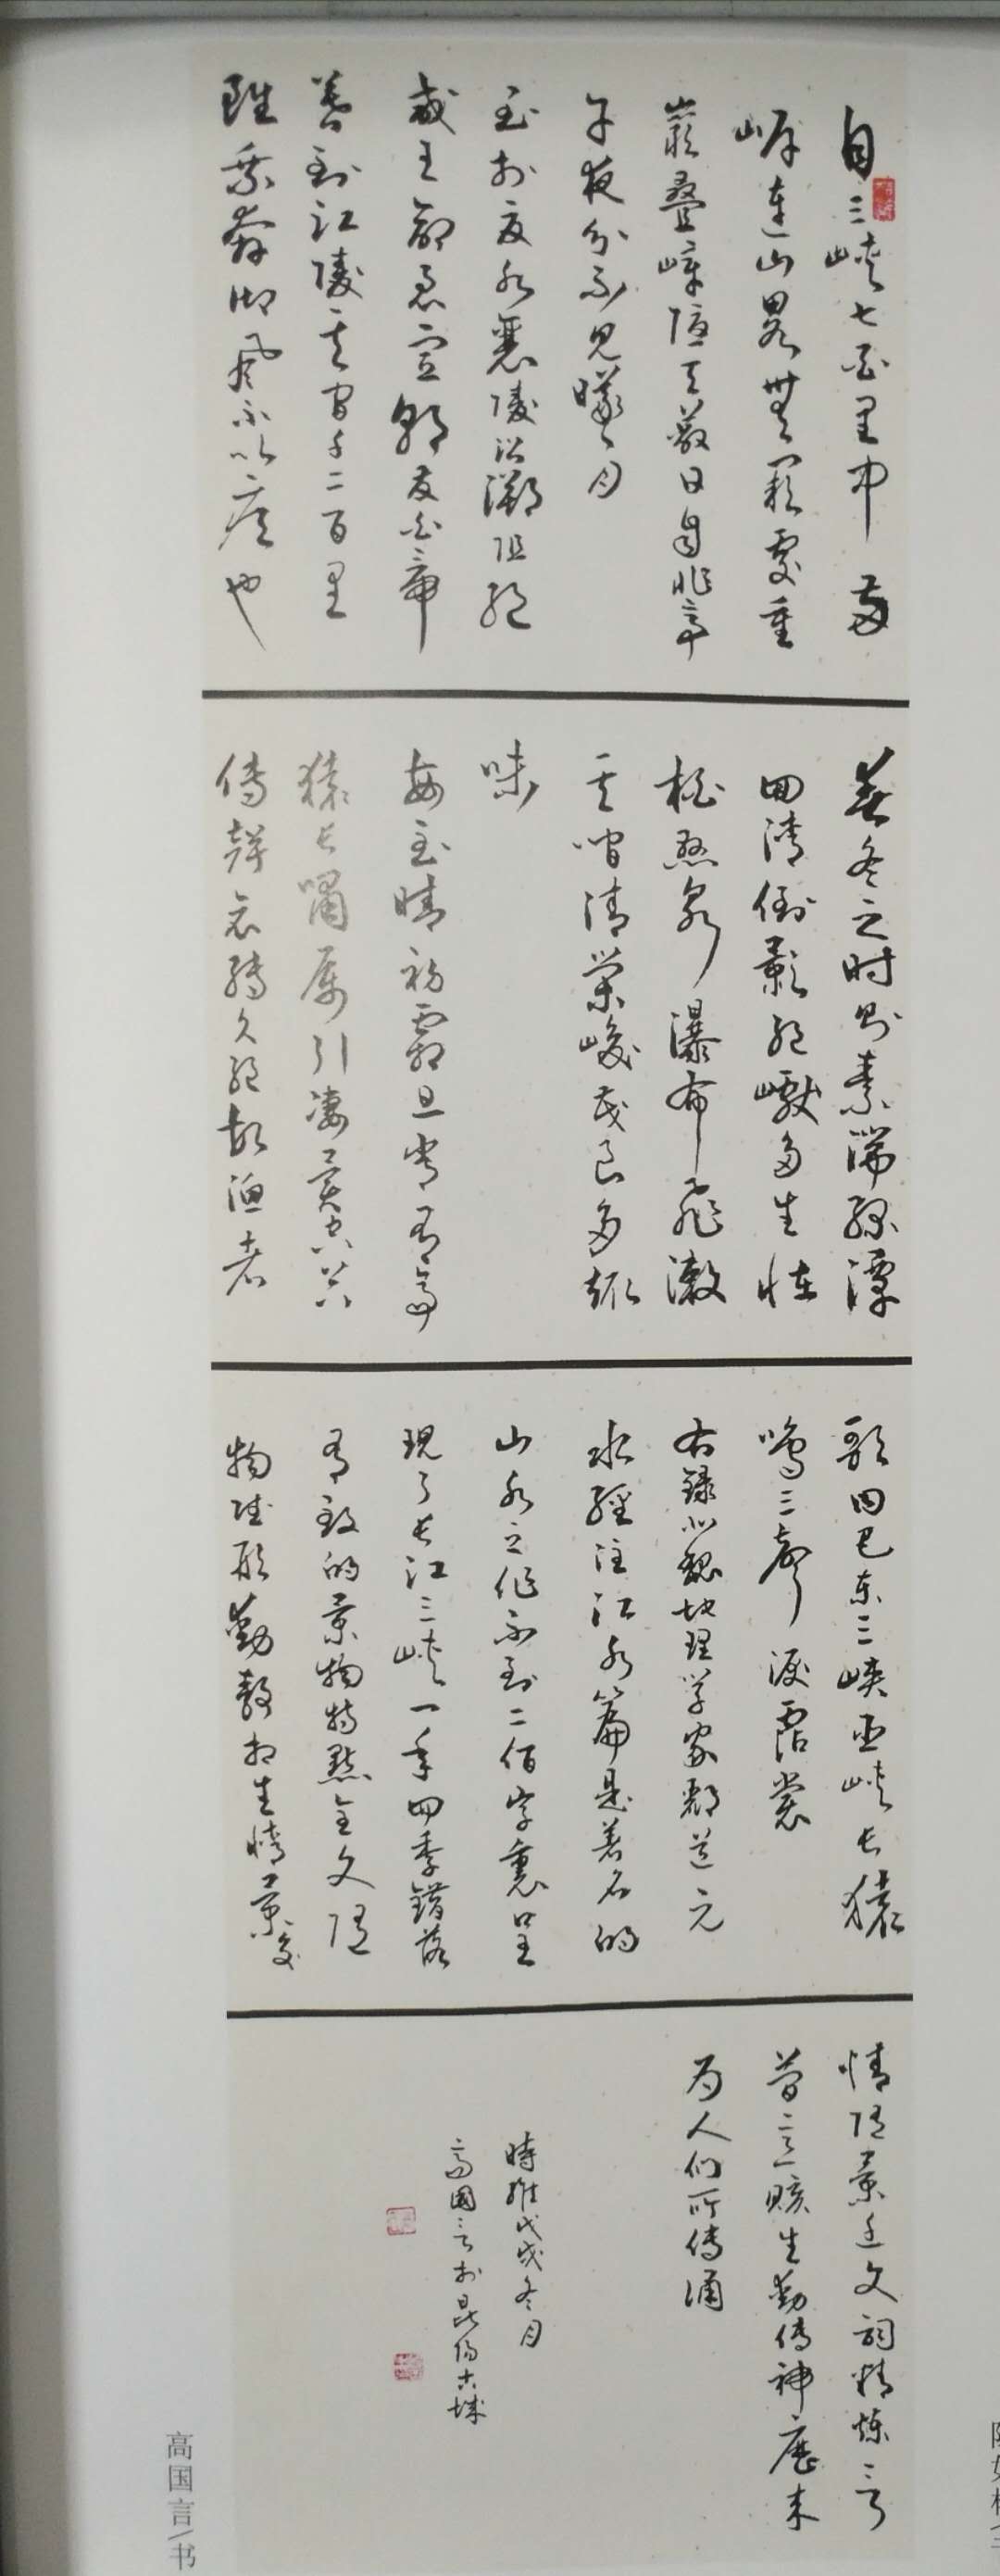 自三峡七百里中两
岸连山略無阙處重
巖叠嶂隐天蔽日自非亭
午夜分不见曦月
至於夏水襄陵沿溯阻绝
或王命急宣朝發白帝
暮到江陵其间千二百里
雖乘奔御風不以疾也
春冬之时则素湍绿潭
回清倒影绝巘多生怪
柏悬泉瀑布飛漱
其间清榮峻茂良多趣
味
每至晴初霜旦常有高
猿长嘯属引凄異空谷
傳響哀转久绝故渔者
歌曰巴东三峡巫峡长猿
鸣三聲淚霑裳
右録北魏地理学家酈道元
水經注江水篇是著名的
山水之作不到二佰字裏呈
现了长江三峡一年四季错落
有致的景物特點全文随
物赋形動静相生情景交
情随景迁文詞精炼言
简意赅生動傳神歷来
为人们所傳诵
時维戊戌冬月
高國言於昆阳古城
高国言/书